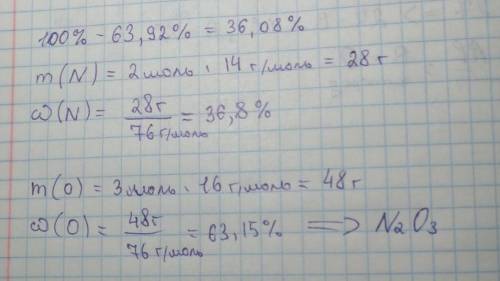 100% - 63,92% = 36,08%
m(N) = 2 моль · 14 г/моль = 28 г
ω(N) = 28г / 76 г/моль = 36,8%
m(O) = 3 моль · 16 г/моль = 48г
ω(O) = 48г / 76 г/моль = 63,15% ⟹ N2O3